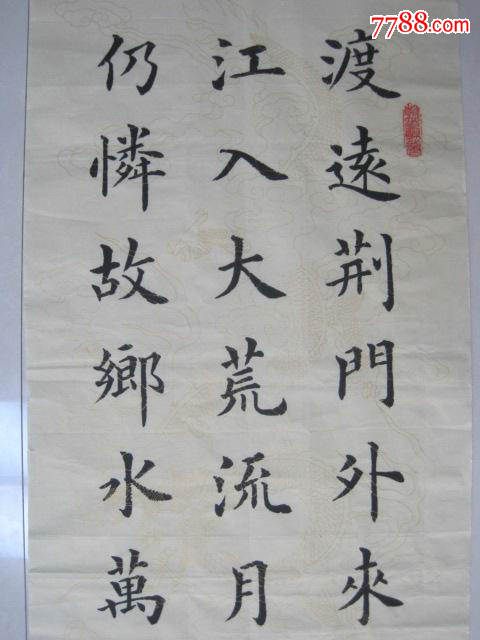 7788.com
渡遠荆門外來
江入大荒流月
仍憐故鄉水萬